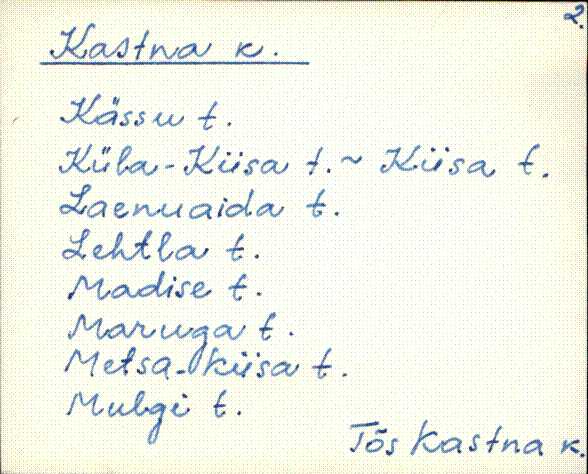 2.
Kastna k.
Kässu t.
Küla-Kiisa t. ~ Kiisa t.
Laenuaida t.
Lehtla t.
Madise t.
Maruga t.
Metsa-Kiisa t.
Mulgi t.
Tõs Kastna k.